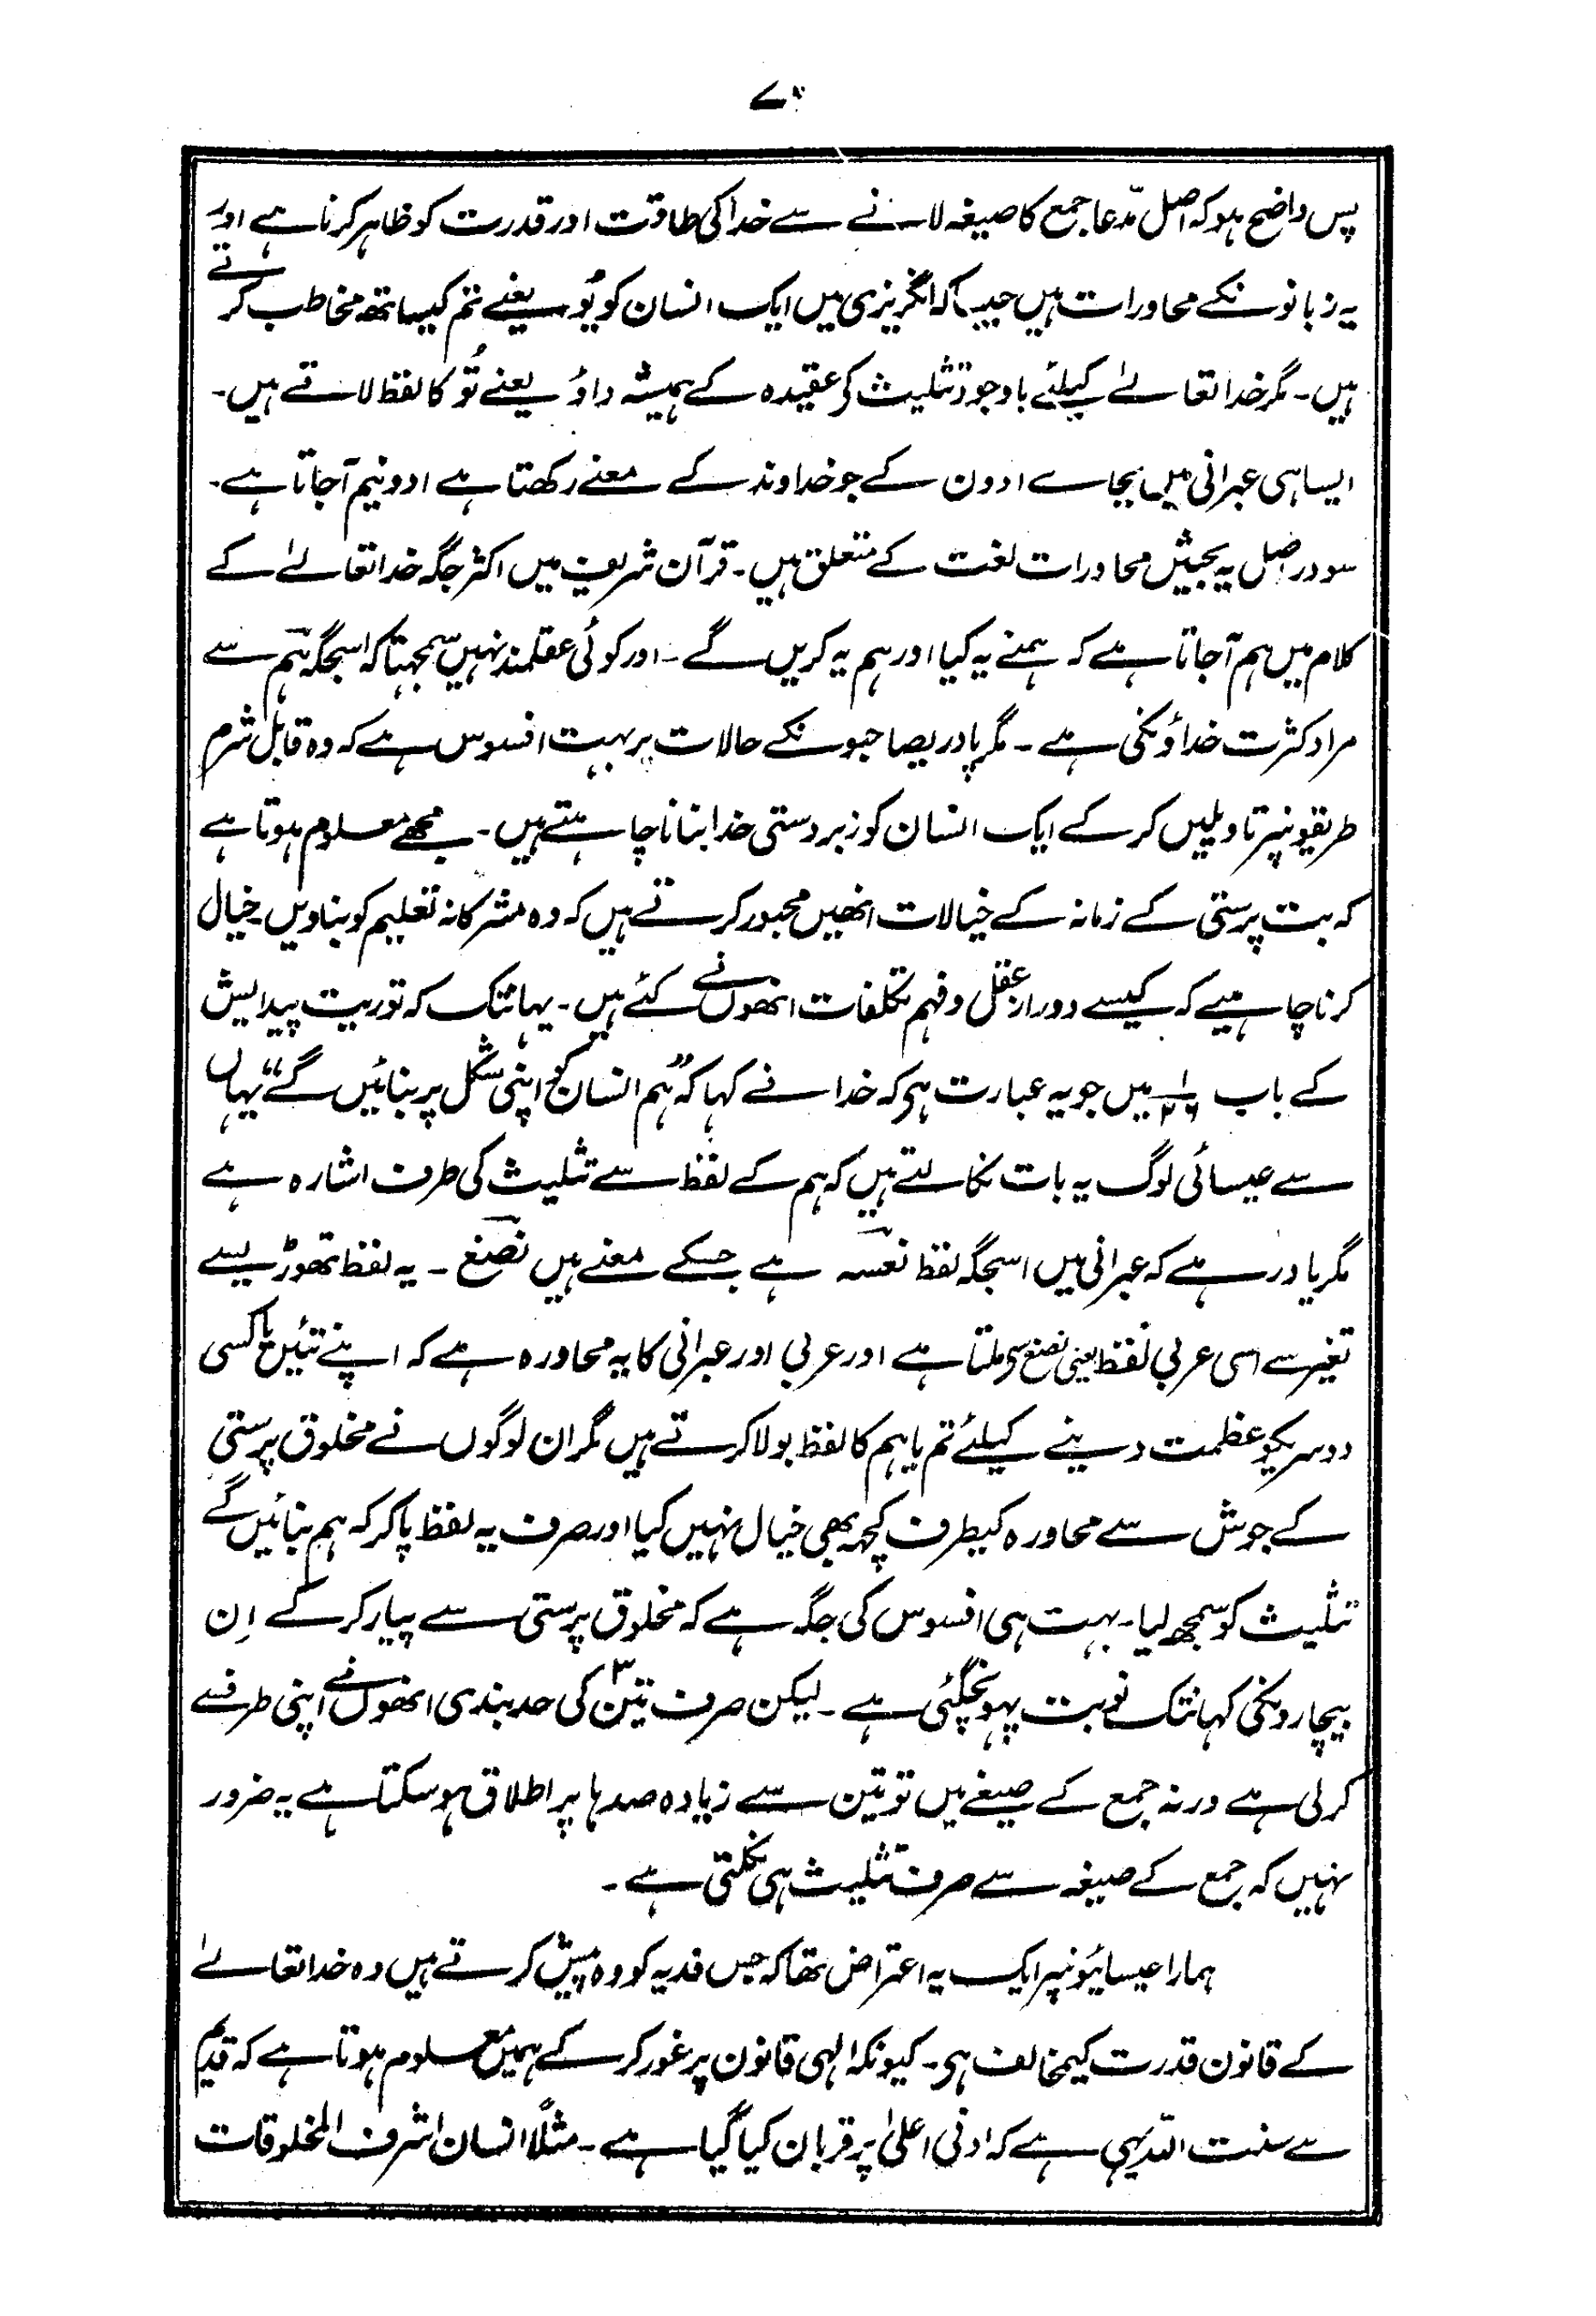 ۷۰
پس واضح ہو کہ اصل مدّعا جمع کا صیغہ لانے سے خدا کی طاقت اور قدرت کو ظاہر کرنا ہے اور
یہ زبانونکے محاورات ہیں جیسا کہ انگریزی میں ایک انسان کو یُو یعنے تم کیساتھ مخاطب کرتے
ہیں۔ مگر خدا تعالےٰ کیلئے باوجود تثلیث کے عقیدہ کے ہمیشہ داؤ یعنے تُو کا لفظ لاتے ہیں۔
ایسا ہی عبرانی میں بجائے ادون کے جو خداوند کے معنے رکھتا ہے ادونیم آجاتا ہے۔
سو دراصل یہ بحثیں محاورات لغت کے متعلق ہیں۔ قرآن شریف میں اکثر جگہ خدا تعالےٰ کے
کلام میں ہم آجاتا ہے کہ ہمنے یہ کیا اور ہم یہ کریں گے۔ اور کوئی عقلمند نہیں سمجہتا کہ اسجگہ ہم سے
مراد کثرت خداؤنکی ہے۔ مگر پادریصاحبونکے حالات پر بہت افسوس ہے کہ وہ قابل شرم
طریقونپر تاویلیں کرکے ایک انسان کو زبردستی خدا بنانا چاہتے ہیں۔ مجھے معلوم ہوتا ہے
کہ بت پرستی کے زمانہ کے خیالات انھیں مجبور کرتے ہیں کہ وہ مشرکانہ تعلیم کو بناویں خیال
کرنا چاہیے کہ کیسے دور از عقل و فہم تکلفات انھوں نے کئے ہیں۔ یہانتک کہ توریت پیدایش
کے باب ۱/۲۶ میں جو یہ عبارت ہی کہ خدا نے کہا کہ ”ہم انسان کو اپنی شکل پر بنائیں گے“ یہاں
سے عیسائی لوگ یہ بات نکالتے ہیں کہ ہم کے لفظ سے تثلیث کی طرف اشارہ ہے
مگر یاد رہے کہ عبرانی میں اسجگہ لفظ نعسہ ہے جسکے معنے ہیں نصنع۔ یہ لفظ تھوڑیسے
تغیر سے اسی عربی لفظ یعنی نصنع سے ملتا ہے اور عربی اور عبرانی کا یہ محاورہ ہے کہ اپنے تئیں یا کسی
دوسریکو عظمت دینے کیلئے تم یا ہم کا لفظ بولا کرتے ہیں مگر ان لوگوں نے مخلوق پرستی
کے جوش سے محاورہ کیطرف کچہہ بھی خیال نہیں کیا اور صرف یہ لفظ پاکر کہ ہم بنائیں گے
تثلیث کو سمجھ لیا۔ بہت ہی افسوس کی جگہ ہے کہ مخلوق پرستی سے پیار کرکے اِن
بیچارونکی کہانتک نوبت پہونچگئی ہے۔ لیکن صرف تین۳ کی حد بندی انھوں نے اپنی طرفسے
کرلی ہے ورنہ جمع کے صیغے میں تو تین سے زیادہ صدہا پر اطلاق ہوسکتا ہے یہ ضرور
نہیں کہ جمع کے صیغہ سے صرف تثلیث ہی نکلتی ہے۔
ہمارا عیسائیونپر ایک یہ اعتراض تھا کہ جس فدیہ کو وہ پیش کرتے ہیں وہ خدا تعالےٰ
کے قانون قدرت کیمخالف ہی۔ کیونکہ الٰہی قانون پر غور کرکے ہمیں معلوم ہوتا ہے کہ قدیم
سے سنت اللّٰہ یہی ہے کہ ادنی اعلیٰ پر قربان کیا گیا ہے۔ مثلًا انسان اشرف المخلوقات